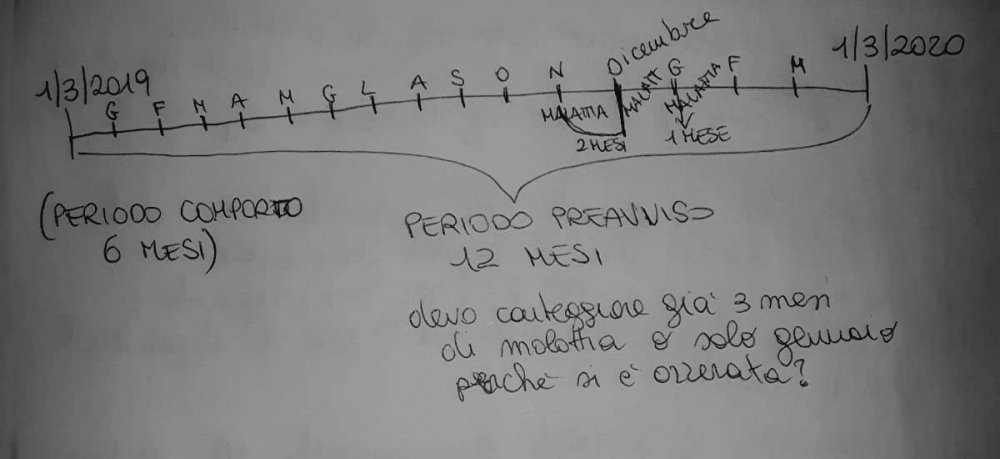 1/3/2019
G F M A M G L A S O N Dicembre G F M
1/3/2020
MALATTIA MALATT MALATTIA
2 MESI 1 MESE
(PERIODO COMPORTO
6 MESI)
PERIODO PREAVVISO
12 MESI
devo conteggiare già 3 mesi
di malattia o solo gennaio
perchè si è azzerata?